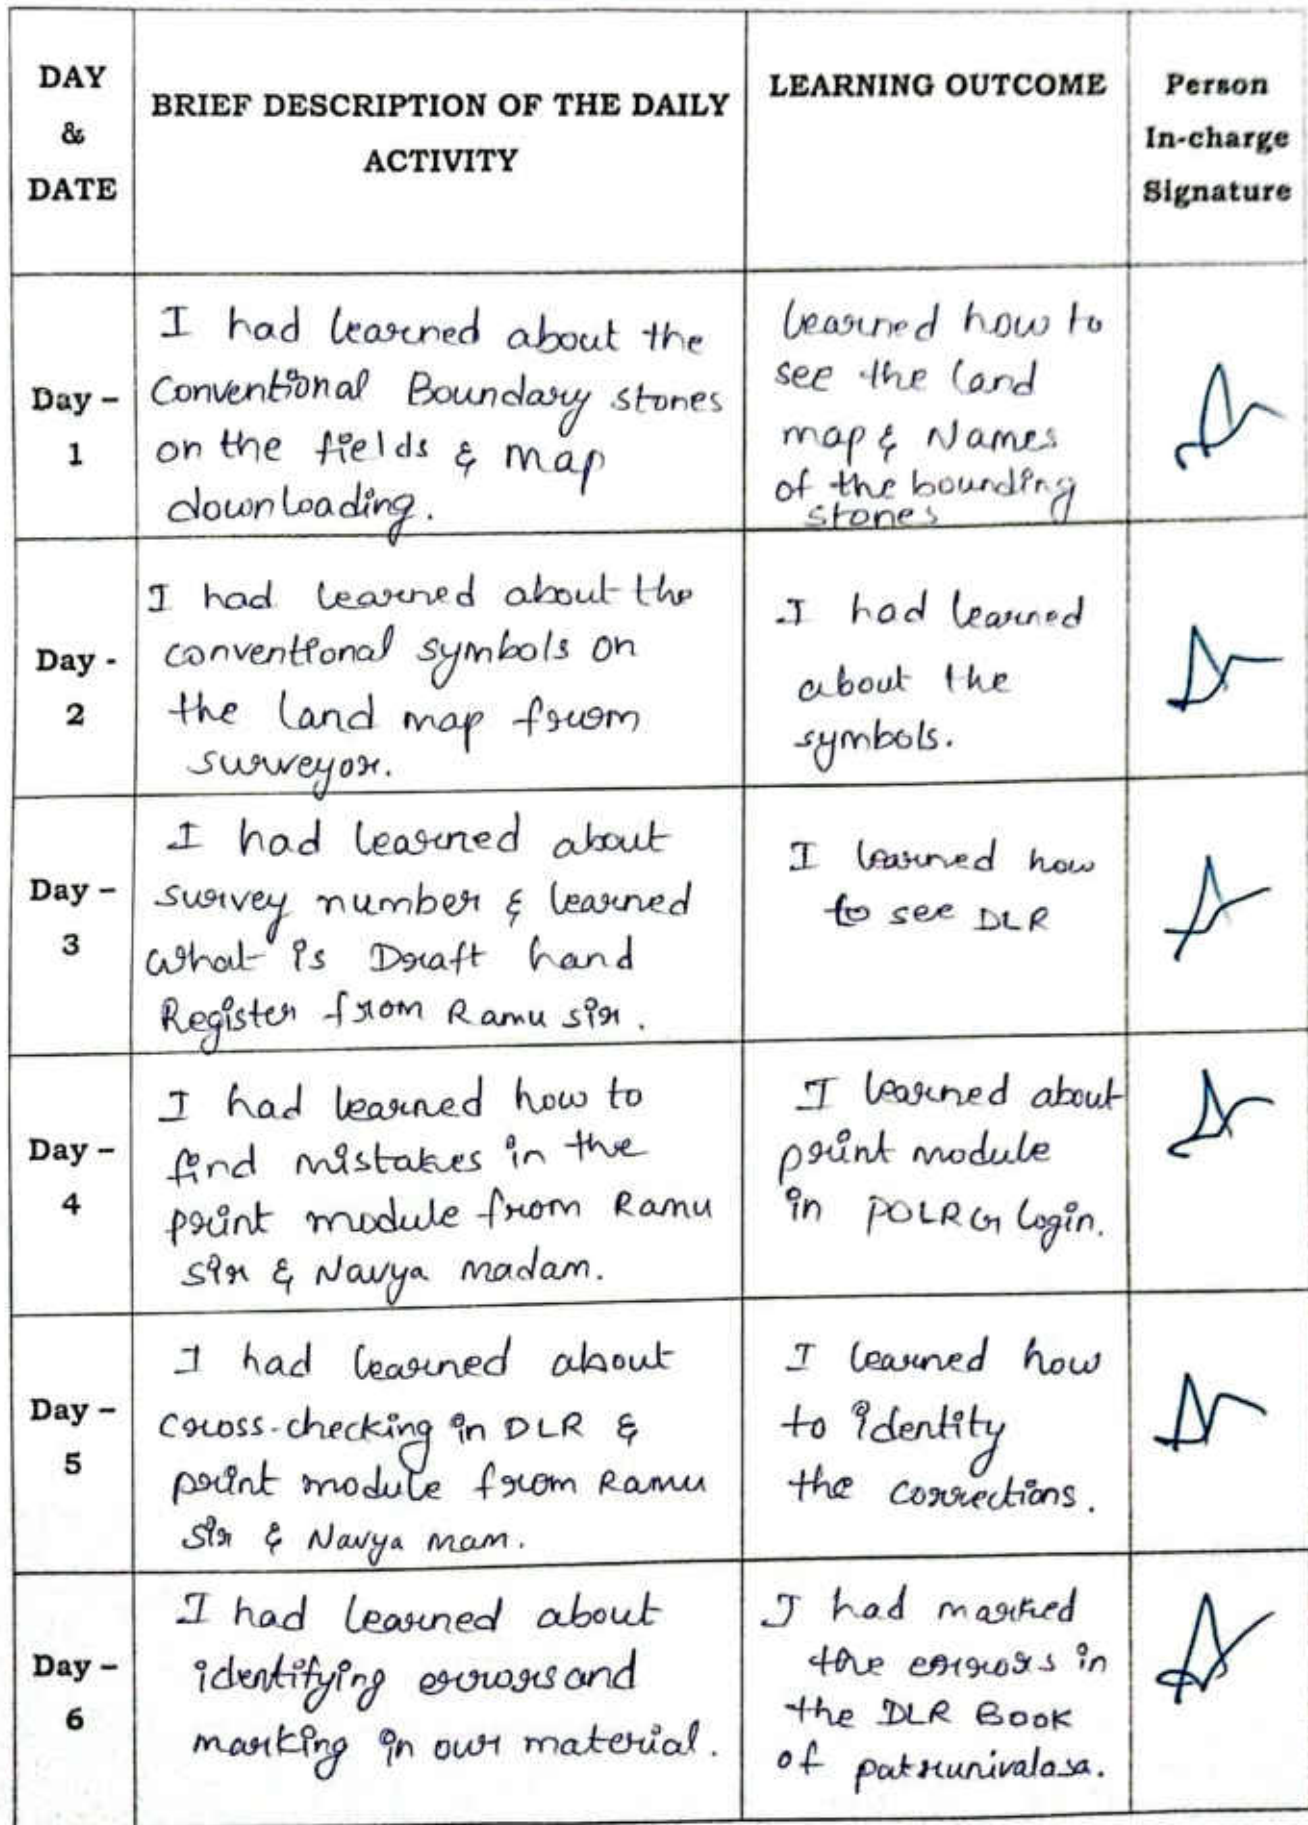 DAY
&
DATE
BRIEF DESCRIPTION OF THE DAILY
ACTIVITY
LEARNING OUTCOME
Person
In-charge
Signature
Day –
1
I had learned about the
Conventional Boundary stones
on the fields & map
downloading.
learned how to
see the land
map & Names
of the bounding
stones
Day -
2
I had learned about the
conventional symbols on
the land map from
surveyor.
I had learned
about the
symbols.
Day –
3
I had learned about
survey number & learned
what is Draft hand
Register from Ramu sir.
I learned how
to see DLR
Day –
4
I had learned how to
find mistakes in the
print module from Ramu
sir & Navya madam.
I learned about
print module
in POLRG login.
Day –
5
I had learned about
cross-checking in DLR &
print module from Ramu
sir & Navya mam.
I learned how
to identity
the corrections.
Day –
6
I had learned about
identifying errors and
marking in our material.
I had marked
the errors in
the DLR Book
of patrunivalasa.